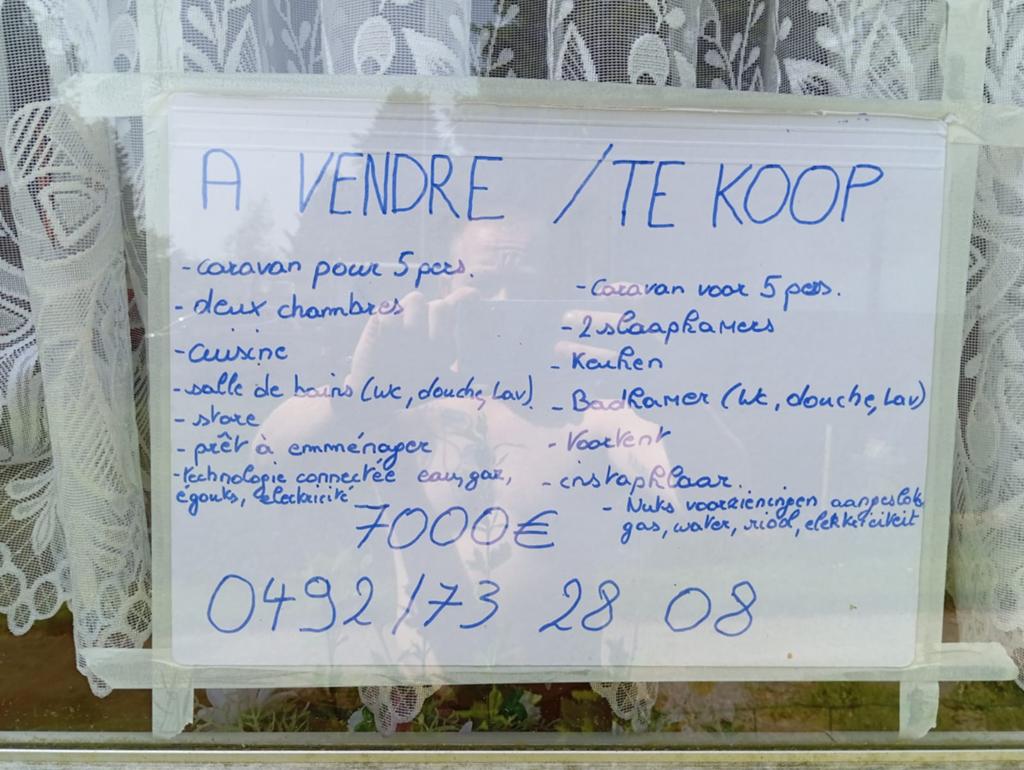 A VENDRE / TE KOOP
- caravan pour 5 pers.
- deux chambres
- cuisine
- salle de bains (wc, douche, lav)
- store
- prêt à emménager
- technologie connectée eau, gaz,
égouts, électricité
- Caravan voor 5 pers.
- 2 slaapkamers
- Keuken
- Badkamer (wc, douche, lav)
- Voortent
- instapklaar.
- Nuts voorzieningen aangeslot
gas, water, riool, elekticiteit
7000€
0492/73 28 08